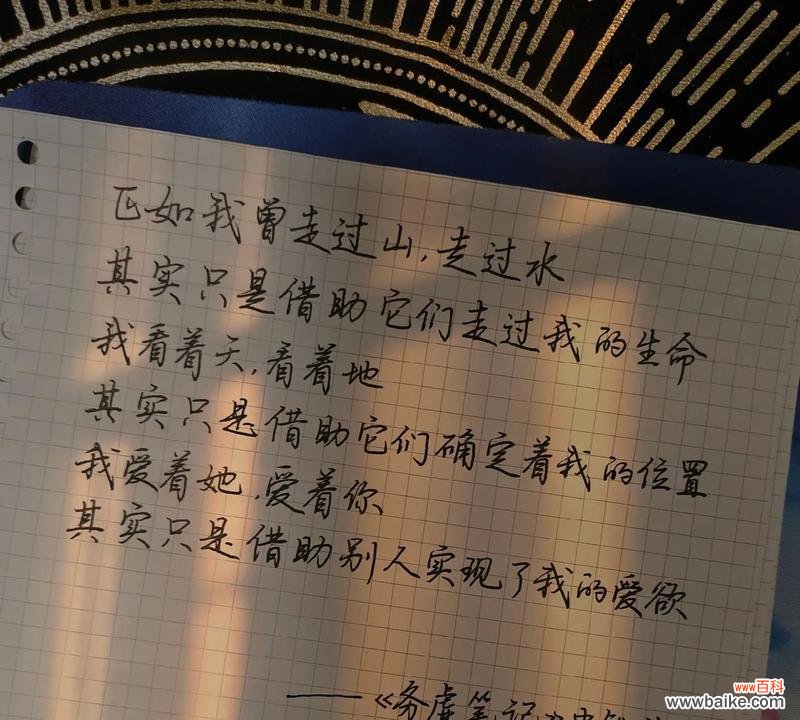 正如我曾走过山,走过水
其实只是借助它们走过我的生命
我看着天,看着地
其实只是借助它们确定着我的位置
我爱着她,爱着你
其实只是借助别人实现了我的爱欲
——《务虚笔记》
www百科
www.baike.com